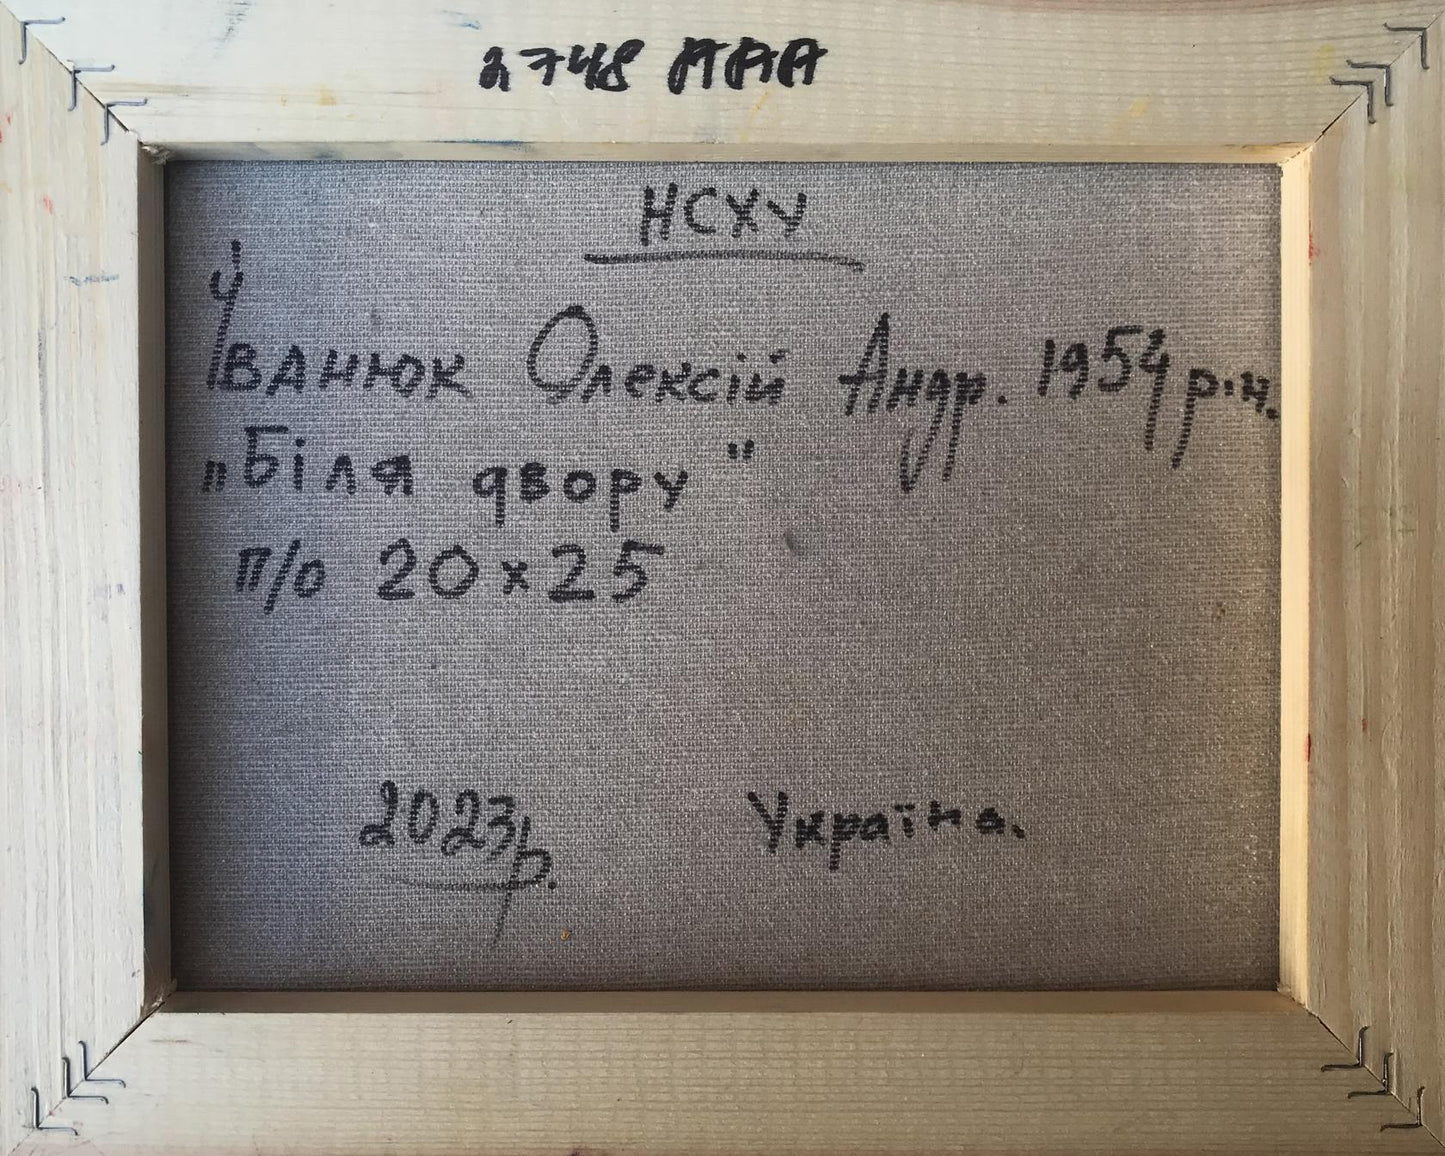 2748 AAA
НСХУ
Іванюк Олексій Андр. 1954 р.н.
„Біля двору"
п/о 20х25
2023р. Україна.